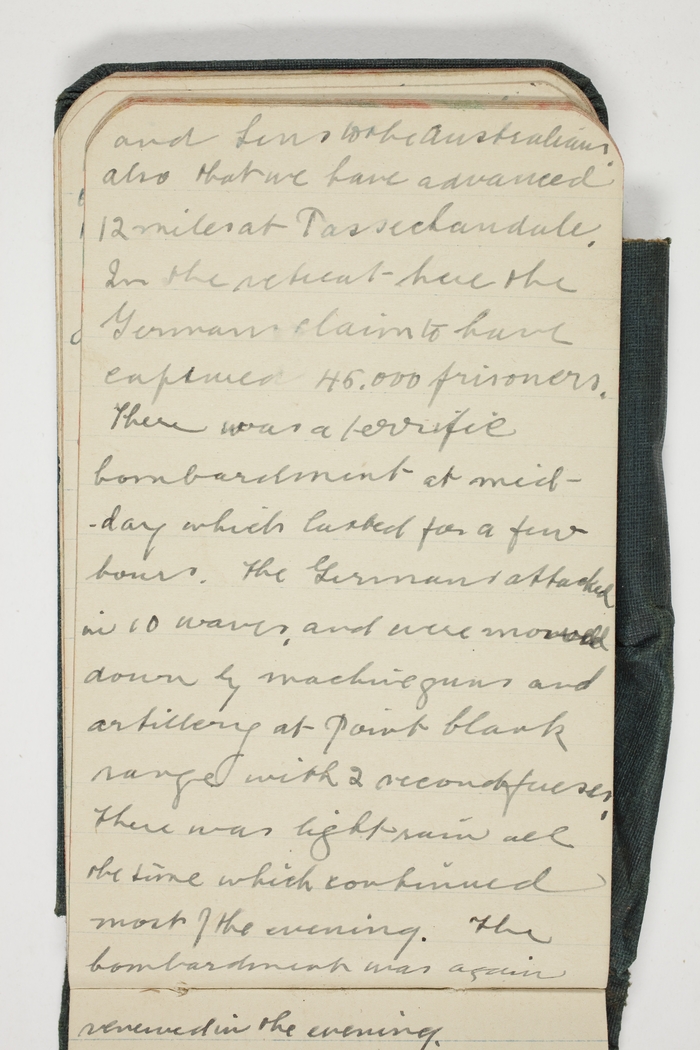 and Lens to the Australians
also that we have advanced
12 miles at Passechandale.
In the retreat here the
Germans claim to have
captured 45.000 prisoners.
There was a terrific
bombardment at mid-
-day which lasted for a few
hours. The Germans attacked
in 10 waves, and were mowed
down by machineguns and
artillery at Point blank
range with 2 second fuses.
There was light rain all
the time which continued
most of the evening. The
bombardment was again
renewed in the evening.